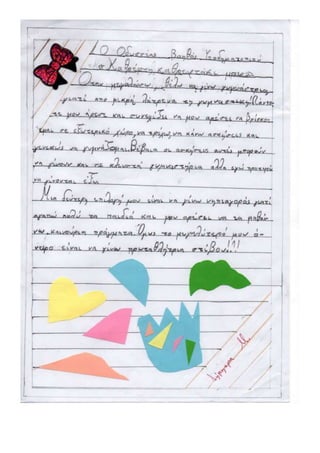 Όταν μεγαλώσω θέλω να γίνω γυμνάστρια
γιατί από μικρή λάτρευα τη γυμναστική. Πάντο-
τε μου άρεσε και συνεχίζει να μου αρέσει να βρίσκο-
μαι σε εξωτερικό χώρο, να τρέχω, να κάνω ασκήσεις και
γενικώς να γυμνάζομαι. Βέβαια οι ασκήσεις αυτές μπορούν
να γίνουν και σε κλειστά γυμναστήρια αλλά εγώ προτιμώ
να γίνονται έξω.
Μια δεύτερη επιλογή μου είναι να γίνω νηπιαγωγός γιατί
αγαπώ πολύ τα παιδιά και μου αρέσει να τα μαθαί-
νω καινούρια πράγματα. Όμως το μεγαλύτερό μου ό-
νειρο είναι να γίνω πρωταθλήτρια στίβου!!!